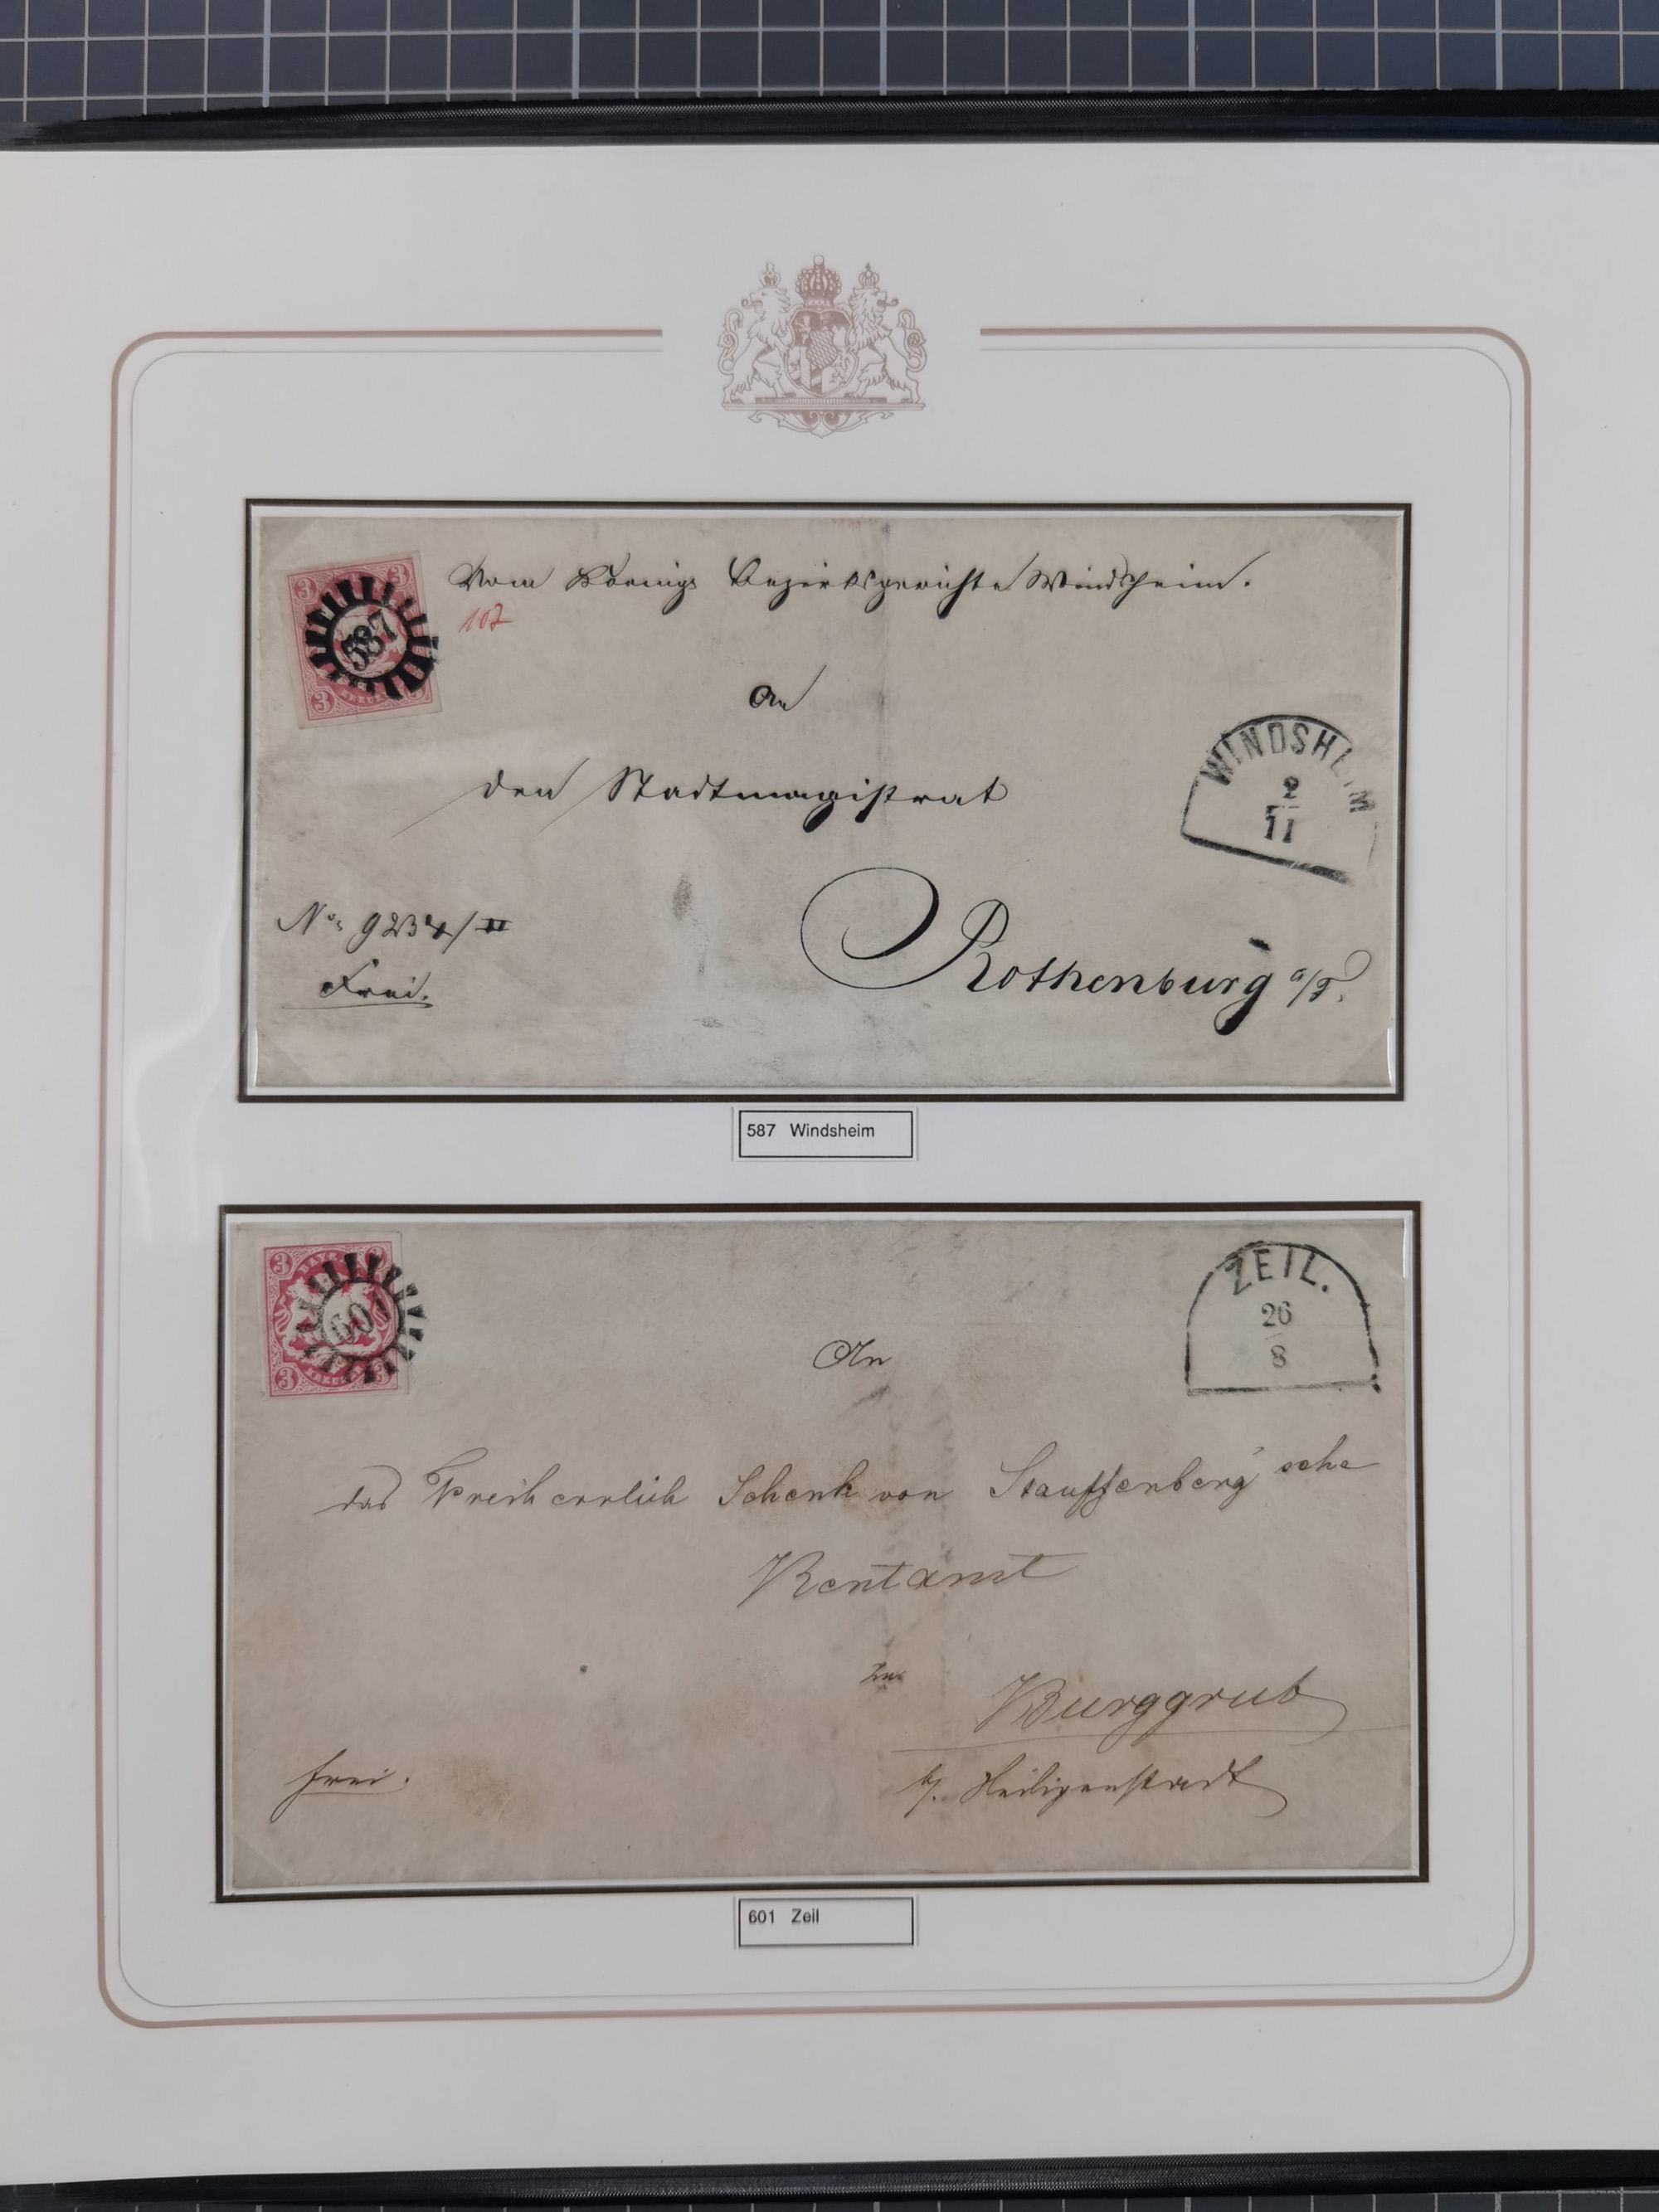 3 3
587
3
KREUZ
Vom Koenigs Bezirksgerichte Windsheim.
107
An
den Stadtmagistrat
WINDSHEIM
2
11
No: 9234/II
Frei.
Rothenburg a/T.
587 Windsheim
3 BAY
601
3
ZEIL.
26
8
An
das Freiherrlich Schenk von Stauffenberg'sche
Rentamt
zu
Burggrub
b/. Heiligenstadt
frei.
601 Zeil